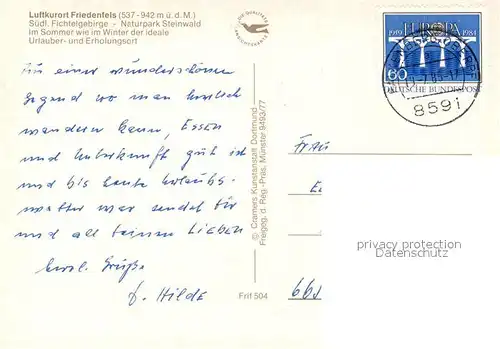 Luftkurort Friedenfels (537-942 m ü. d. M.)
Südl. Fichtelgebirge - Naturpark Steinwald
im Sommer wie im Winter der ideale
Urlauber- und Erholungsort
DIE QUALITÄTS
ANSICHTSKARTE
EUROPA
1959 1984
60
DEUTSCHE BUNDESPOST
8591
Aus einer wunderschönen
Gegend wo man herrlich
wandern kann, Essen
und Unterkunft gut ist
und bis heute Urlaubs-
wetter war sendet Dir
und all Deinen Lieben
herzl. Grüße
Hilde
© Cramers Kunstanstalt Dortmund
Freigeg. d. Reg.-Präs. Münster 9493/77
Frif 504
Frau
privacy protection
ansichtskarten-center.de